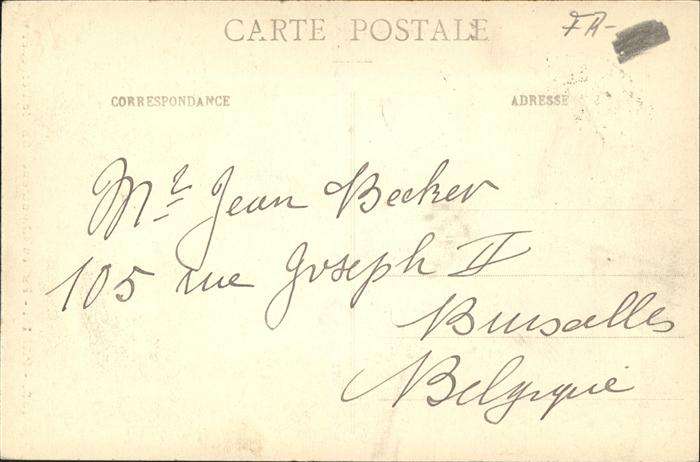 CARTE POSTALE
FR-
CORRESPONDANCE
ADRESSE
Mr Jean Becker
105 rue Joseph II
Bruxelles
Belgique